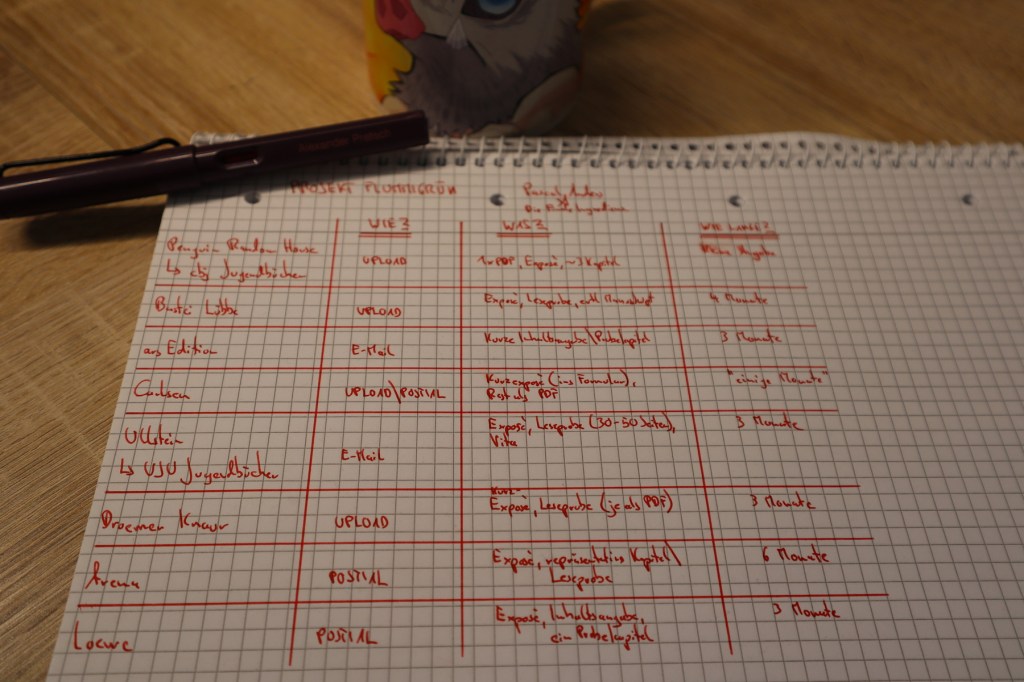 PROJEKT
WIE? WAS? WIE LANGE?
Penguin Random House
↳ cbj Jugendbücher UPLOAD 1x PDF, Exposé, ~3 Kapitel
Bastei Lübbe UPLOAD Exposé, Leseprobe, 4 Monate
ars Edition E-Mail Kurze Inhaltsangabe\Probekapitel 3 Monate
Carlsen UPLOAD\POSTIAL Kurzexposé (ins Formular), "einige Monate"
Rest als PDF
Ullstein Exposé, Leseprobe (30-50 Seiten), 3 Monate
↳ Jugendbücher E-Mail Vita
Kurz-
Droemer Knaur UPLOAD Exposé, Leseprobe (je als PDF) 3 Monate
Arena POSTIAL Exposé, repräsentatives Kapitel\ 6 Monate
Leseprobe
Loewe POSTIAL Exposé, Inhaltsangabe, 3 Monate
ein Probekapitel